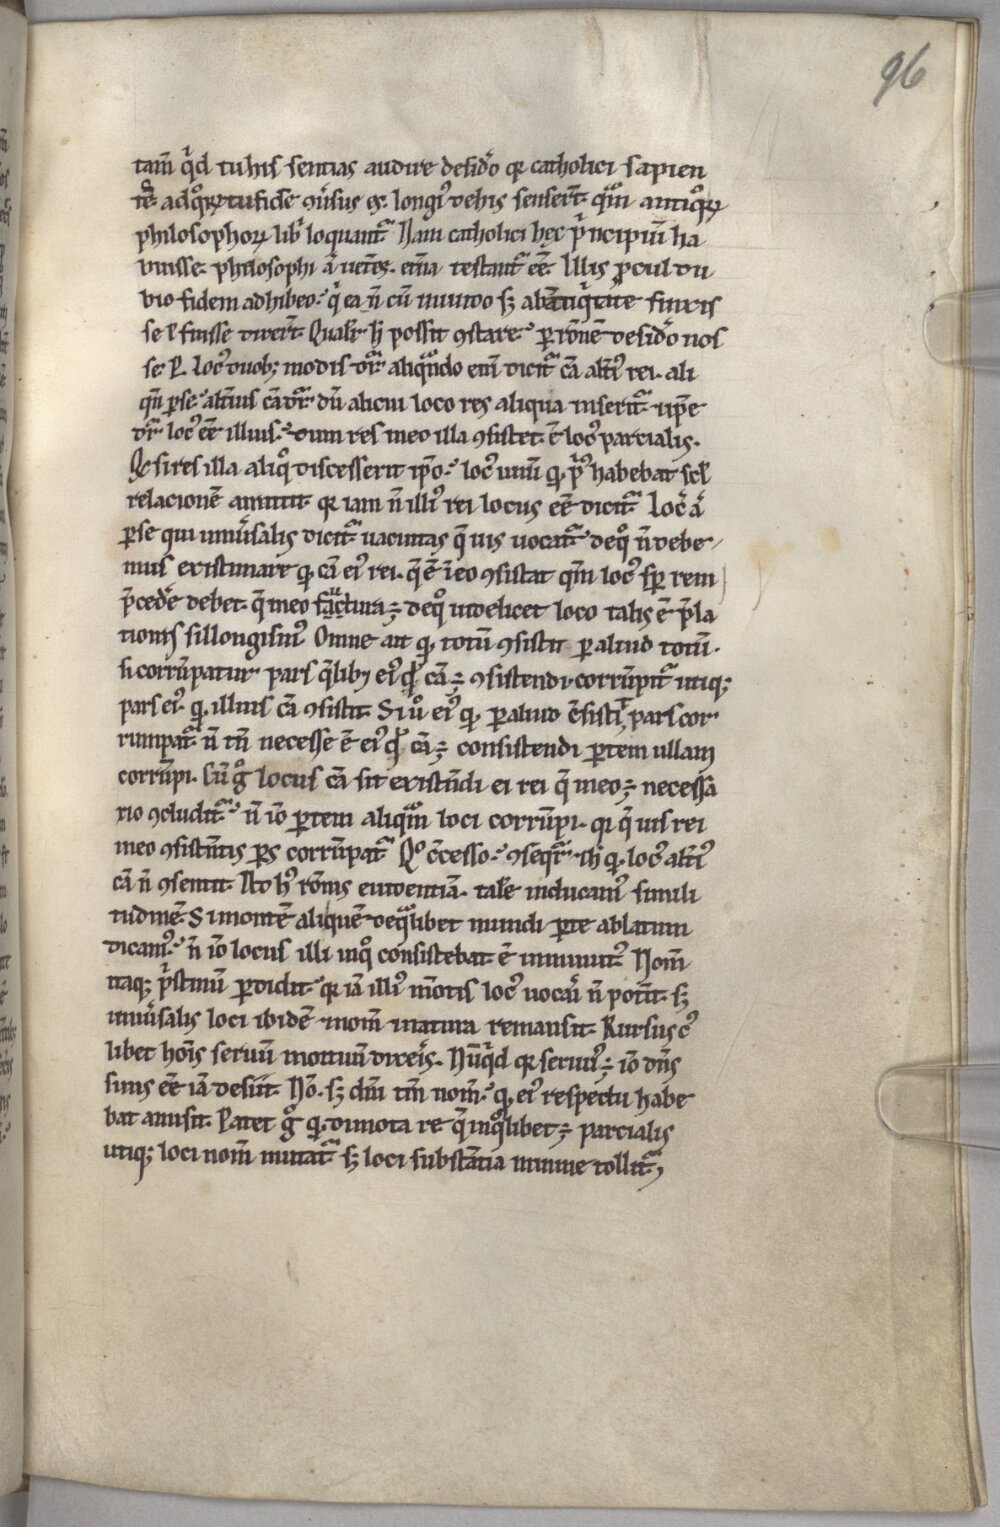 96
tam̄ qͥd tu hiſ ſentiaſ audire deſid̕o qꝛ catholici ſapien
teſ̄ ad qͦꝝ tu fidē ꝯu̕ſuſ eſ. longi᷒ de hiſ ſenſer̄t. qͣm antiqͦꝝ
philoſophoꝝ lib̕ loquant᷑ Nam catholici hęc pͥncipiū ha
buiſſe. philoſophi ū uet̕eſ. et̕na teſtant᷑ eē. Illiſ ꝓcul du
bio fidem adhibeo. qͥ ea n̄ cū mundo ſꝫ ab
ſe ł fuiſſe dixer̄t. Qualit̕ h̄ poſſit ꝯſtare. ꝑ ronē deſid̕o noſ
ſe. P. Loc᷒ duob; modiſ dr᷑. aliqͣndo eni dicit᷑ cā alt̕i᷒ rei. ali
qn̄ ꝑ ſe. alt̕iuſ cā dr᷑. dū alicui loco reſ aliqua inſerit᷑. ꝑpͥe
dr᷑ loc᷒ eē illiuſ. dum reſ in eo illa ꝯſiſtet. ē loc᷒ parcialiſ.
Qͥ ſi reſ illa aliqͦ diſceſſerit ip̄o. loc᷒ unū qͥ pͥ᷒ habebat ſcł
relacionē amittit. qꝛ iam n̄ illi᷒ rei locuſ eē dicit᷑. Loc᷒ ū
ꝑ ſe qui uniu̕ſaliſ dicit᷑ uacuitaſ qͣ uiſ uocat᷑. de qͦ n̄ debe
muſ exiſtimare qͥ cā ei᷒ rei. q̄ ē in eo ꝯſiſtat qm̄ loc᷒ ſp̄ rem
p̄ced̕e debet. q̄ in eo factura ē. de qͦ uidelicet loco taliſ ē pͥla
tioniſ ſillongiſm᷒ Omne ait qͥ totū ꝯſiſtit ꝑ aliud totū.
ſi corrūpatur parſ q̄lib; ei᷒ qͥ cā ē ꝯſiſtendi. corrūpit᷑ utiq;
parſ ei᷒. qͥ illiuſ cā ꝯſiſtit. Si u̕o ei᷒ qͥ ꝑ aliud cſiſtit parſ cor
rumpat᷑. n̄ tn̄ neceſſe ē ei᷒ qͥ cā ē conſiſtendi ꝑtem ullam
corrūpi. Cū gͦ locuſ cā ſit exiſtn̄di ei rei q̄ in eo ē. neceſſa
rio ꝯcludit᷑. n̄ io̅ ꝑtem aliqͣm loci corrūpi. qꝛ q̄ uiſ rei
in eo ꝯſiſtn̄tiſ ꝑſ corrūpat᷑ D. Cͦceſſo. ꝯſeqͥt᷑. qͥ loc᷒ alt̕i᷒
cā n̄ ꝯſentit. Ad h᷒ roniſ euidentiā. talē inducam᷒ ſimili
tudinē. Si montē aliquē de qͣlibet mundi ꝑte ablatum
dicam᷒. n̄ io̅ locuſ illi in qͦ conſiſtebat. ē imminut᷒. Nom̄
itaq; pͥſtinū ꝑdidit. qꝛ iā illi᷒ mōtiſ loc᷒ uocari n̄ poterit. ſꝫ
uniu̕ſaliſ loci ibidē nom̄ in natura remanſit. Rurſuſ c᷒
libet hoīſ ſeruū mortuū dixeriſ. Nūqͥd qꝛ ſeru᷒ ē. io̅ dn̄ſ
ſiniſ eē iā deſiit. No. ſꝫ dn̄i tm̄ nom̄. qͥ ei᷒ reſpectu habe
bat amiſit. Patet gͦ qͥ dimota re q̄ in qͦlibet ē. parcialiſ
utiq; loci nom̄ mutat᷑ ſꝫ loci ſubſtātia minime tollit᷑,